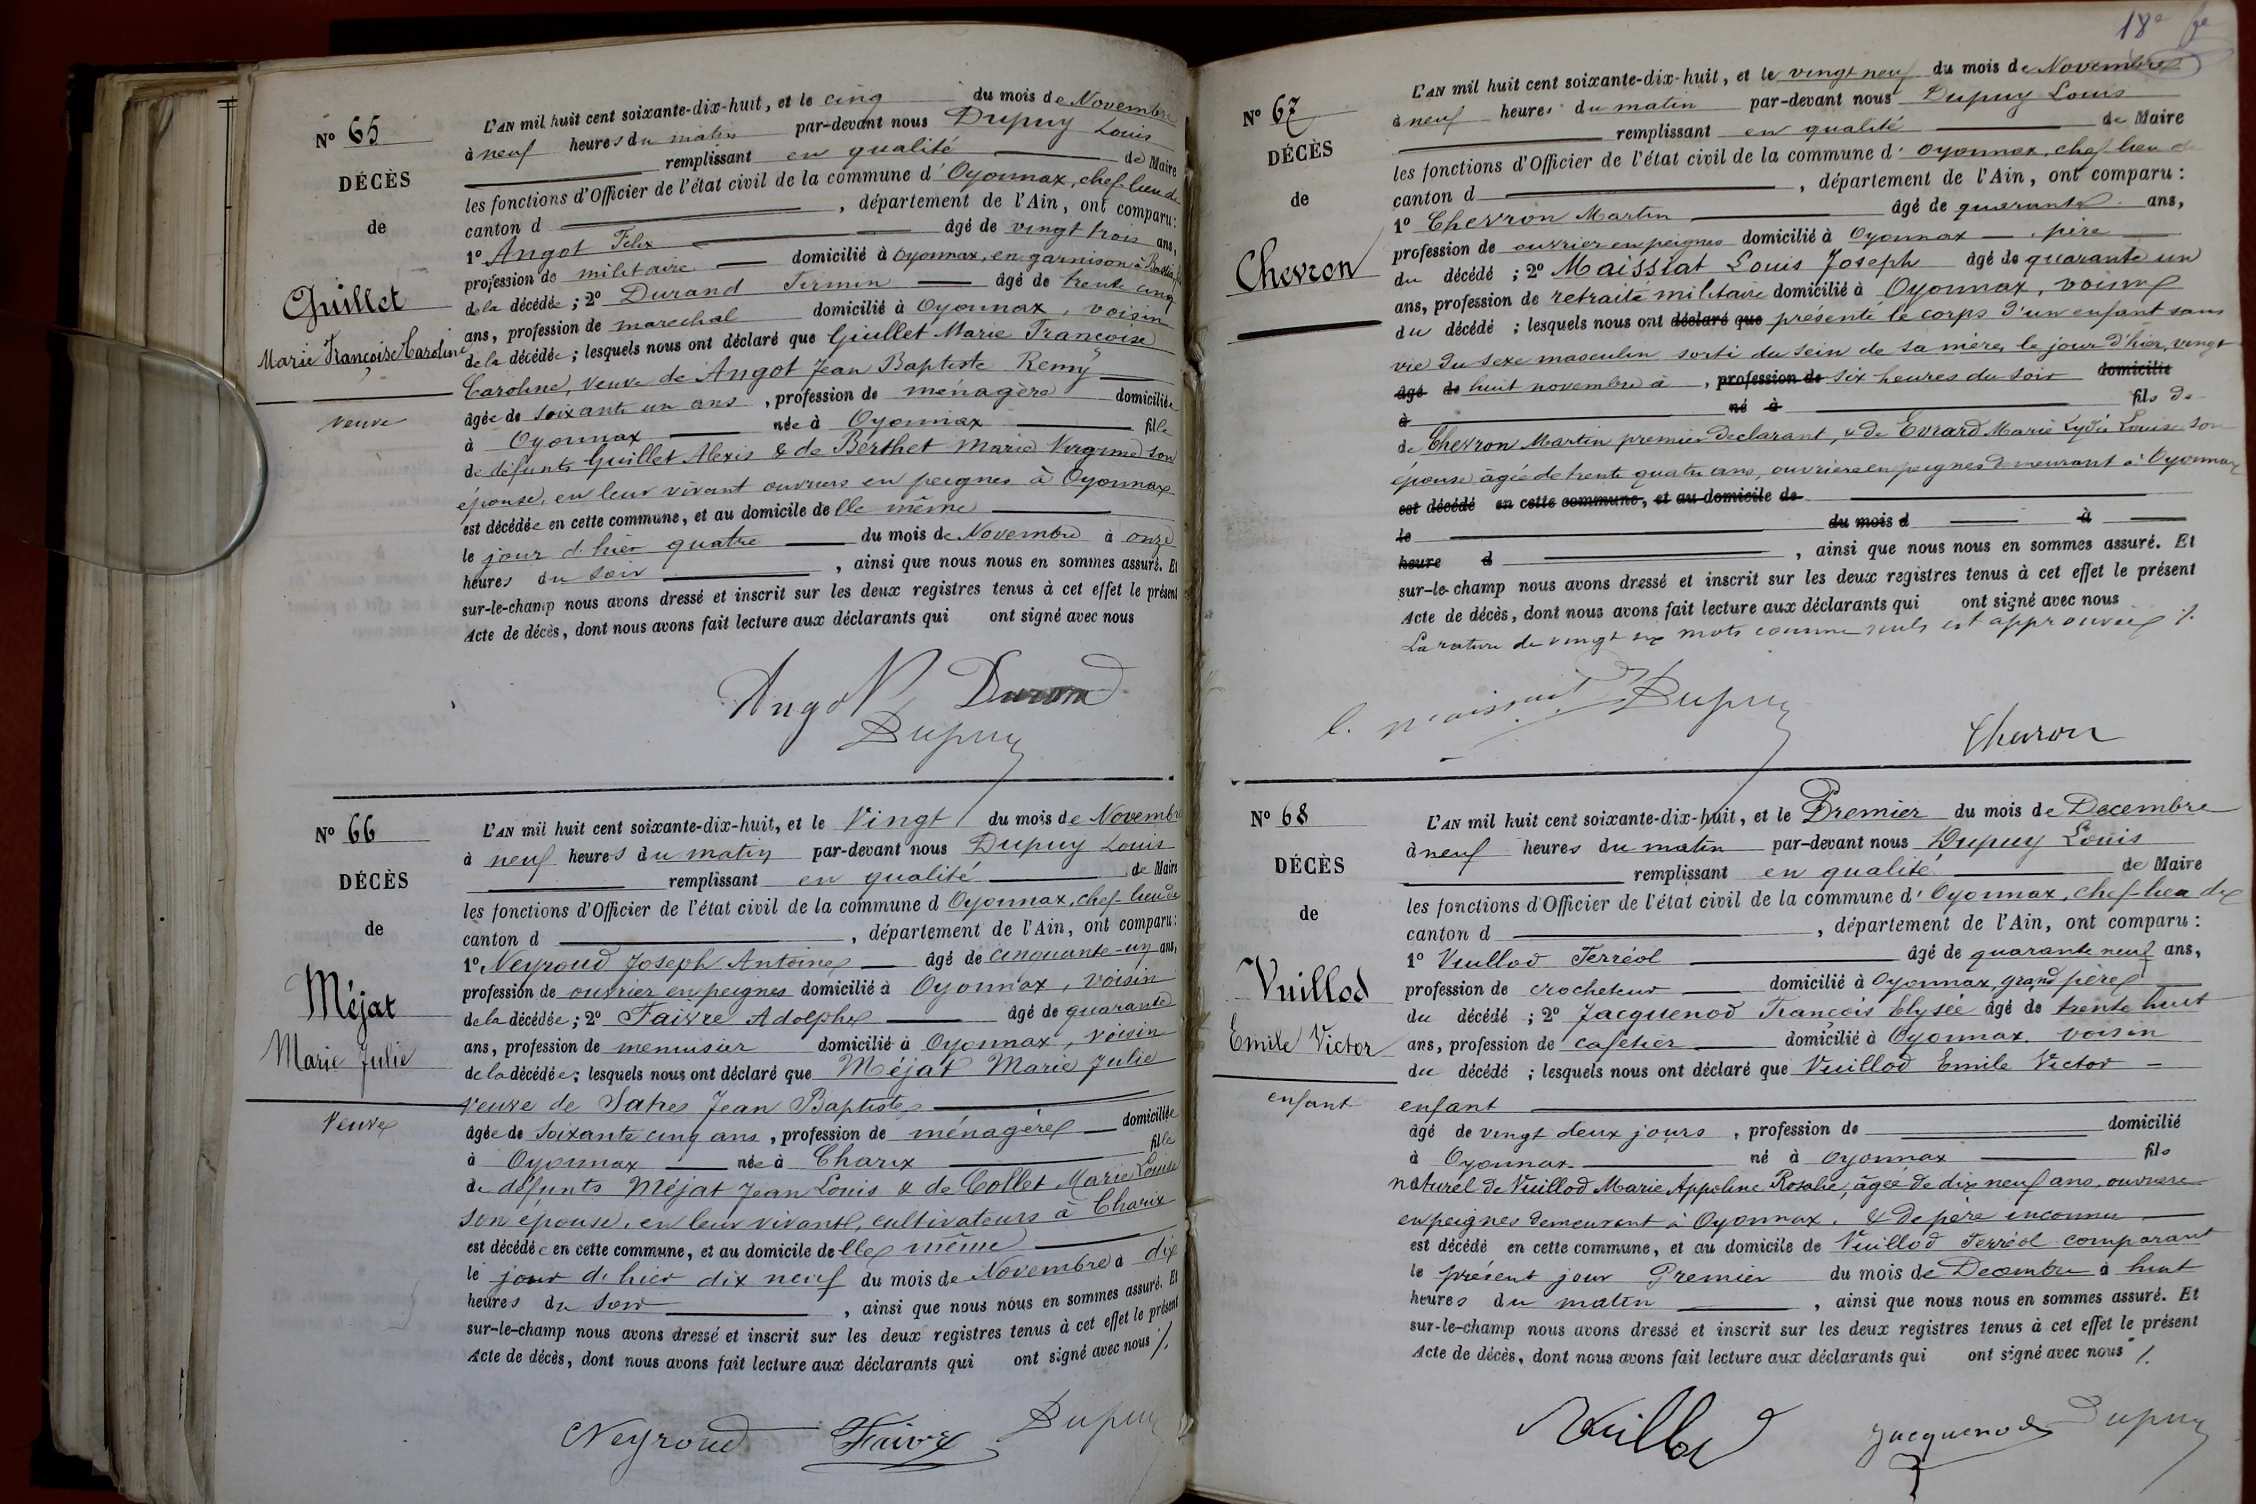 N° 65
DÉCÈS
de
Guillet
Marie Françoise Caroline
veuve
L'AN mil huit cent soixante-dix-huit, et le cinq du mois de Novembre
à neuf heures du matin par-devant nous Dupuy Louis
remplissant en qualité de Maire
les fonctions d'Officier de l'état civil de la commune d'Oyonnax, chef-lieu de
canton d , département de l'Ain, ont comparu:
1° Angot Felix âgé de vingt trois ans,
profession de militaire domicilié à Oyonnax, en garnison à
de la décédée; 2° Durand Firmin âgé de trente cinq
ans, profession de marechal domicilié à Oyonnax, voisin
de la décédée; lesquels nous ont déclaré que Guillet Marie Françoise
Caroline, veuve de Angot Jean Baptiste Remy
âgée de soixante un ans, profession de ménagère domiciliée
à Oyonnax née à Oyonnax fille
de défunts Guillet Alexis & de Berthet Marie Virginie son
épouse, en leur vivant ouvriers en peignes à Oyonnax
est décédée en cette commune, et au domicile de lle même
le jour d'hier quatre du mois de Novembre à onze
heures du soir , ainsi que nous nous en sommes assuré. Et
sur-le-champ nous avons dressé et inscrit sur les deux registres tenus à cet effet le présent
Acte de décès, dont nous avons fait lecture aux déclarants qui ont signé avec nous
Angot Durand
Dupuy
N° 66
DÉCÈS
de
Méjat
Marie Julie
Veuve
L'AN mil huit cent soixante-dix-huit, et le Vingt du mois de Novembre
à neuf heures du matin par-devant nous Dupuy Louis
remplissant en qualité de Maire
les fonctions d'Officier de l'état civil de la commune d Oyonnax, chef-lieu de
canton d , département de l'Ain, ont comparu:
1° Neyroud Joseph Antoine âgé de cinquante-un ans,
profession de ouvrier en peignes domicilié à Oyonnax, voisin
de la décédée; 2° Faivre Adolphe âgé de quarante
ans, profession de menuisier domicilié à Oyonnax, voisin
de la décédée; lesquels nous ont déclaré que Méjat Marie Julie
veuve de Jean Baptiste
âgée de soixante cinq ans, profession de ménagère domiciliée
à Oyonnax née à Charix fille
de défunts Méjat Jean Louis & de Collet Marie Louise
son épouse, en leur vivant, cultivateurs à Charix
est décédée en cette commune, et au domicile de lle même
le jour d'hier dix neuf du mois de Novembre à dix
heures du soir , ainsi que nous nous en sommes assuré. Et
sur-le-champ nous avons dressé et inscrit sur les deux registres tenus à cet effet le présent
Acte de décès, dont nous avons fait lecture aux déclarants qui ont signé avec nous ./.
Neyroud Faivre Dupuy
18e
N° 67
DÉCÈS
de
Chevron
L'AN mil huit cent soixante-dix-huit, et le vingt neuf du mois de Novembre
à neuf heures du matin par-devant nous Dupuy Louis
remplissant en qualité de Maire
les fonctions d'Officier de l'état civil de la commune d'Oyonnax, chef-lieu de
canton d , département de l'Ain, ont comparu:
1° Chevron Martin âgé de quarante ans,
profession de ouvrier en peignes domicilié à Oyonnax, père
du décédé; 2° Maissiat Louis Joseph âgé de quarante un
ans, profession de retraité militaire domicilié à Oyonnax, voisin
du décédé; lesquels nous ont déclaré que présenté le corps d'un enfant sans
vie du sexe masculin sorti du sein de sa mère, le jour d'hier, vingt
âgé de huit novembre à , profession de six heures du soir domicilié
à né à fils de
de Chevron Martin premier déclarant, & de Evrard Marie Lydie Louise son
épouse âgée de trente quatre ans, ouvrière en peignes demeurant à Oyonnax
est décédé en cette commune, et au domicile de
le du mois d à
heure d , ainsi que nous nous en sommes assuré. Et
sur-le-champ nous avons dressé et inscrit sur les deux registres tenus à cet effet le présent
Acte de décès, dont nous avons fait lecture aux déclarants qui ont signé avec nous
La rature de vingt six mots comme nuls est approuvée ./.
l. maissiat Dupuy
Chevron
N° 68
DÉCÈS
de
Vuillod
Emile Victor
enfant
L'AN mil huit cent soixante-dix-huit, et le Premier du mois de Decembre
à neuf heures du matin par-devant nous Dupuy Louis
remplissant en qualité de Maire
les fonctions d'Officier de l'état civil de la commune d'Oyonnax, chef-lieu de
canton d , département de l'Ain, ont comparu:
1° Vuillod Ferréol âgé de quarante neuf ans,
profession de crocheteur domicilié à Oyonnax, grand père
du décédé; 2° Jacquenod François Elysée âgé de trente huit
ans, profession de cafetier domicilié à Oyonnax voisin
du décédé; lesquels nous ont déclaré que Vuillod Emile Victor
enfant
âgé de vingt deux jours, profession de domicilié
à Oyonnax né à Oyonnax fils
naturel de Vuillod Marie Appoline Rosalie, âgée de dix neuf ans, ouvrière
en peignes demeurant à Oyonnax, & de père inconnu
est décédé en cette commune, et au domicile de Vuillod Ferréol comparant
le présent jour Premier du mois de Decembre à huit
heures du matin , ainsi que nous nous en sommes assuré. Et
sur-le-champ nous avons dressé et inscrit sur les deux registres tenus à cet effet le présent
Acte de décès, dont nous avons fait lecture aux déclarants qui ont signé avec nous ./.
Vuillod Jacquenod Dupuy